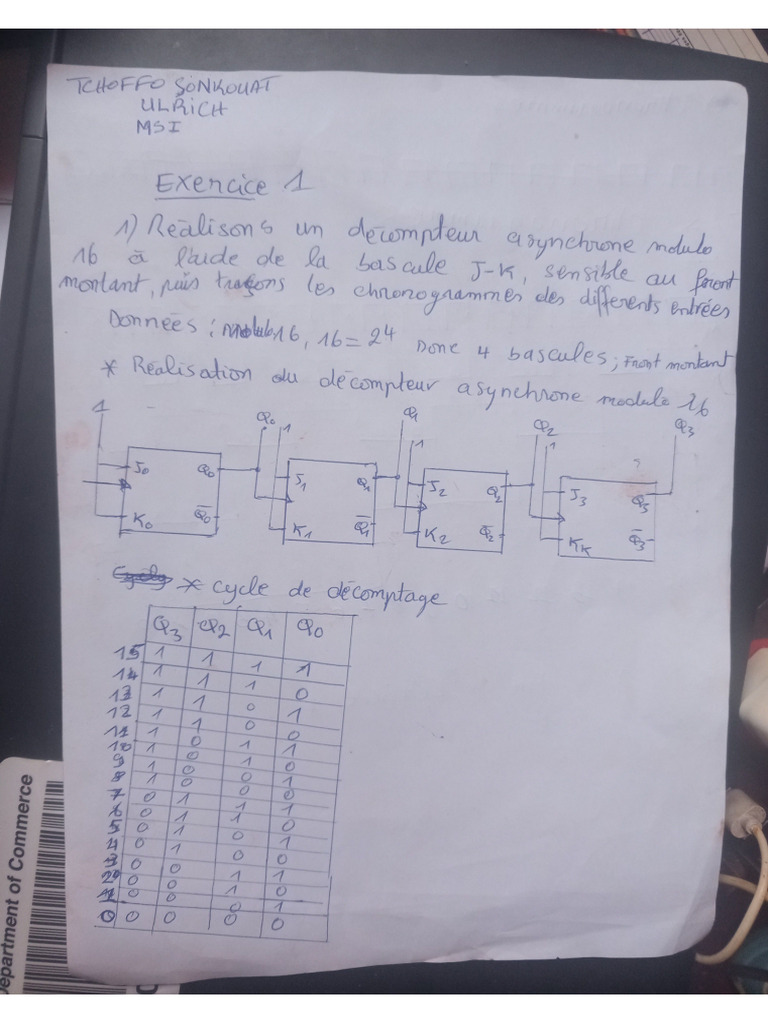 TCHOFFO SONKOUAT
ULRICH
MSI
Exercice 1
1) Réalisons un décompteur asynchrone modulo
16 à l'aide de la bascule J-K, sensible au front
montant, puis traçons les chronogrammes des differents entrées
Données : 16, 16 = 2⁴ Donc 4 bascules; Front montant
* Réalisation du décompteur asynchrone modulo 16
1 Q0 1 Q1 1 Q2 1 Q3
J0 Q0 J1 Q1 J2 Q2 J3 Q3
K0 Q̅0 K1 Q̅1 K2 Q̅2 KK Q̅3
* cycle de décomptage
Q3 Q2 Q1 Q0
15 1 1 1 1
14 1 1 1 0
13 1 1 0 1
12 1 1 0 0
11 1 0 1 1
10 1 0 1 0
9 1 0 0 1
8 1 0 0 0
7 0 1 1 1
6 0 1 1 0
5 0 1 0 1
4 0 1 0 0
3 0 0 1 1
2 0 0 1 0
1 0 0 0 1
0 0 0 0 0
Department of Commerce